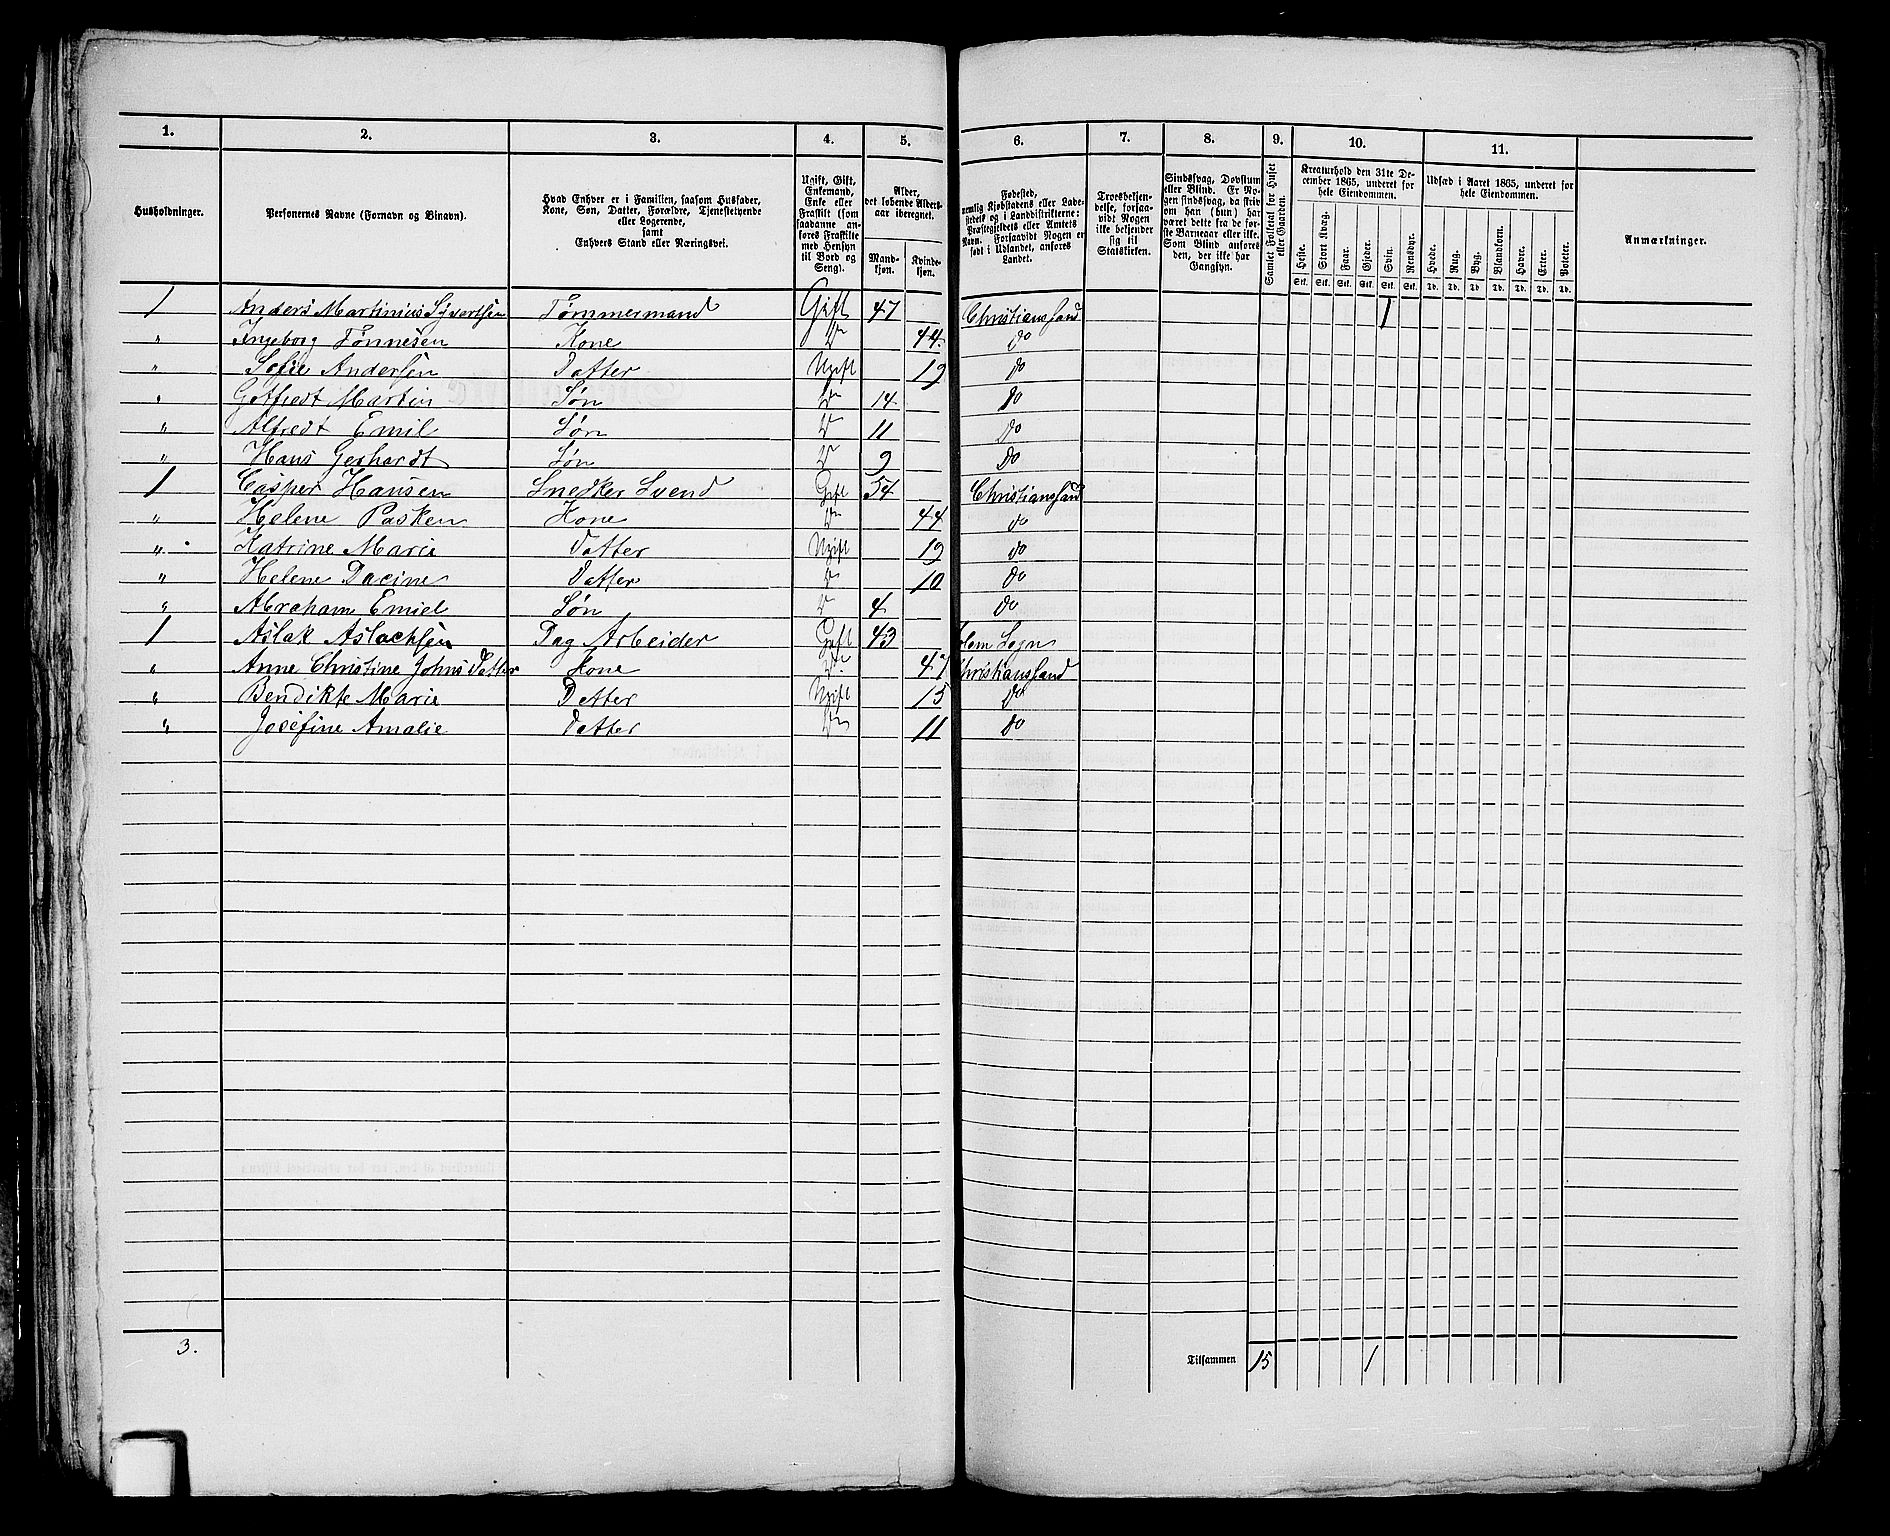 1. 2. 3. 4. 5. 6. 7. 8. 9. 10. 11.
Husholdninger.
Personernes Navne (Fornavn og Binavn).
Hvad Enhver er i Familien, saasom Husfader,
Kone, Søn, Datter, Forældre, Tjenestetyende
eller Logerende,
samt
Enhvers Stand eller Næringsvei.
Ugift, Gift,
Enkemand,
Enke eller
Fraskilt (som
saadanne an-
føres Fraskilte
med Hensyn
til Bord og
Seng).
Alder,
det løbende Alders-
aar iberegnet.
Mand-
kjøn.
Kvinde-
kjøn.
Fødested,
nemlig Kjøbstadens eller Lade-
stedets og i Landdistrikterne:
Præstegjeldets eller Amtets
Navn. Forsaavidt Nogen er
født i Udlandet, anføres
Landet.
Troesbekjen-
delse, forsaa-
vidt Nogen
ikke bekjender
sig til
Statskirken.
Sindssvag, Døvstum
eller Blind. Er No-
gen sindssvag, da skriv
om han (hun) har
været dette fra de før-
ste Barneaar eller ikke.
Som Blind anføres
den, der ikke har
Gangsyn.
Samlet Folketal for Huset
eller Gaarden.
Kreaturhold den 31te De-
cember 1865, underet for
hele Eiendommen.
Heste. Stort Kvæg. Faar. Gjeder. Svin. Rensdyr.
Stk. Stk. Stk. Stk. Stk. Stk.
Udsæd i Aaret 1865, underet for
hele Eiendommen.
Hvede. Rug. Byg. Blandkorn. Havre. Erter. Poteter.
Td. Td. Td. Td. Td. Td. Td.
Anmærkninger.
1 Anders Martinius Syvertsen Tømmermand Gift 47 Christianssand 1
" Ingeborg Tønnesen Kone Do 44 do
" Sofie Andersen Datter Ugift 19 do
" Gotfredt Martin Søn Do 14 do
" Alfredt Emil Søn Do 11 Do
" Hans Gerhardt Søn Do 9 Do
1 Casper Hansen Snedker Svend Gift 54 Christianssand
" Helene Pasken Kone Do 44 do
" Katrine Marie Datter Ugift 19 do
" Helene Dacine Datter Do 10 do
" Abraham Emiel Søn Do 4 do
1 Aslak Aslachsen Dag Arbeider Gift 43 Sogn
" Anne Christine Johns Datter Kone Do 47 Christianssand
" Bendikte Marie Datter Ugift 15 do
" Josefine Amalie Datter Do 11 do
3. Tilsammen 15 1